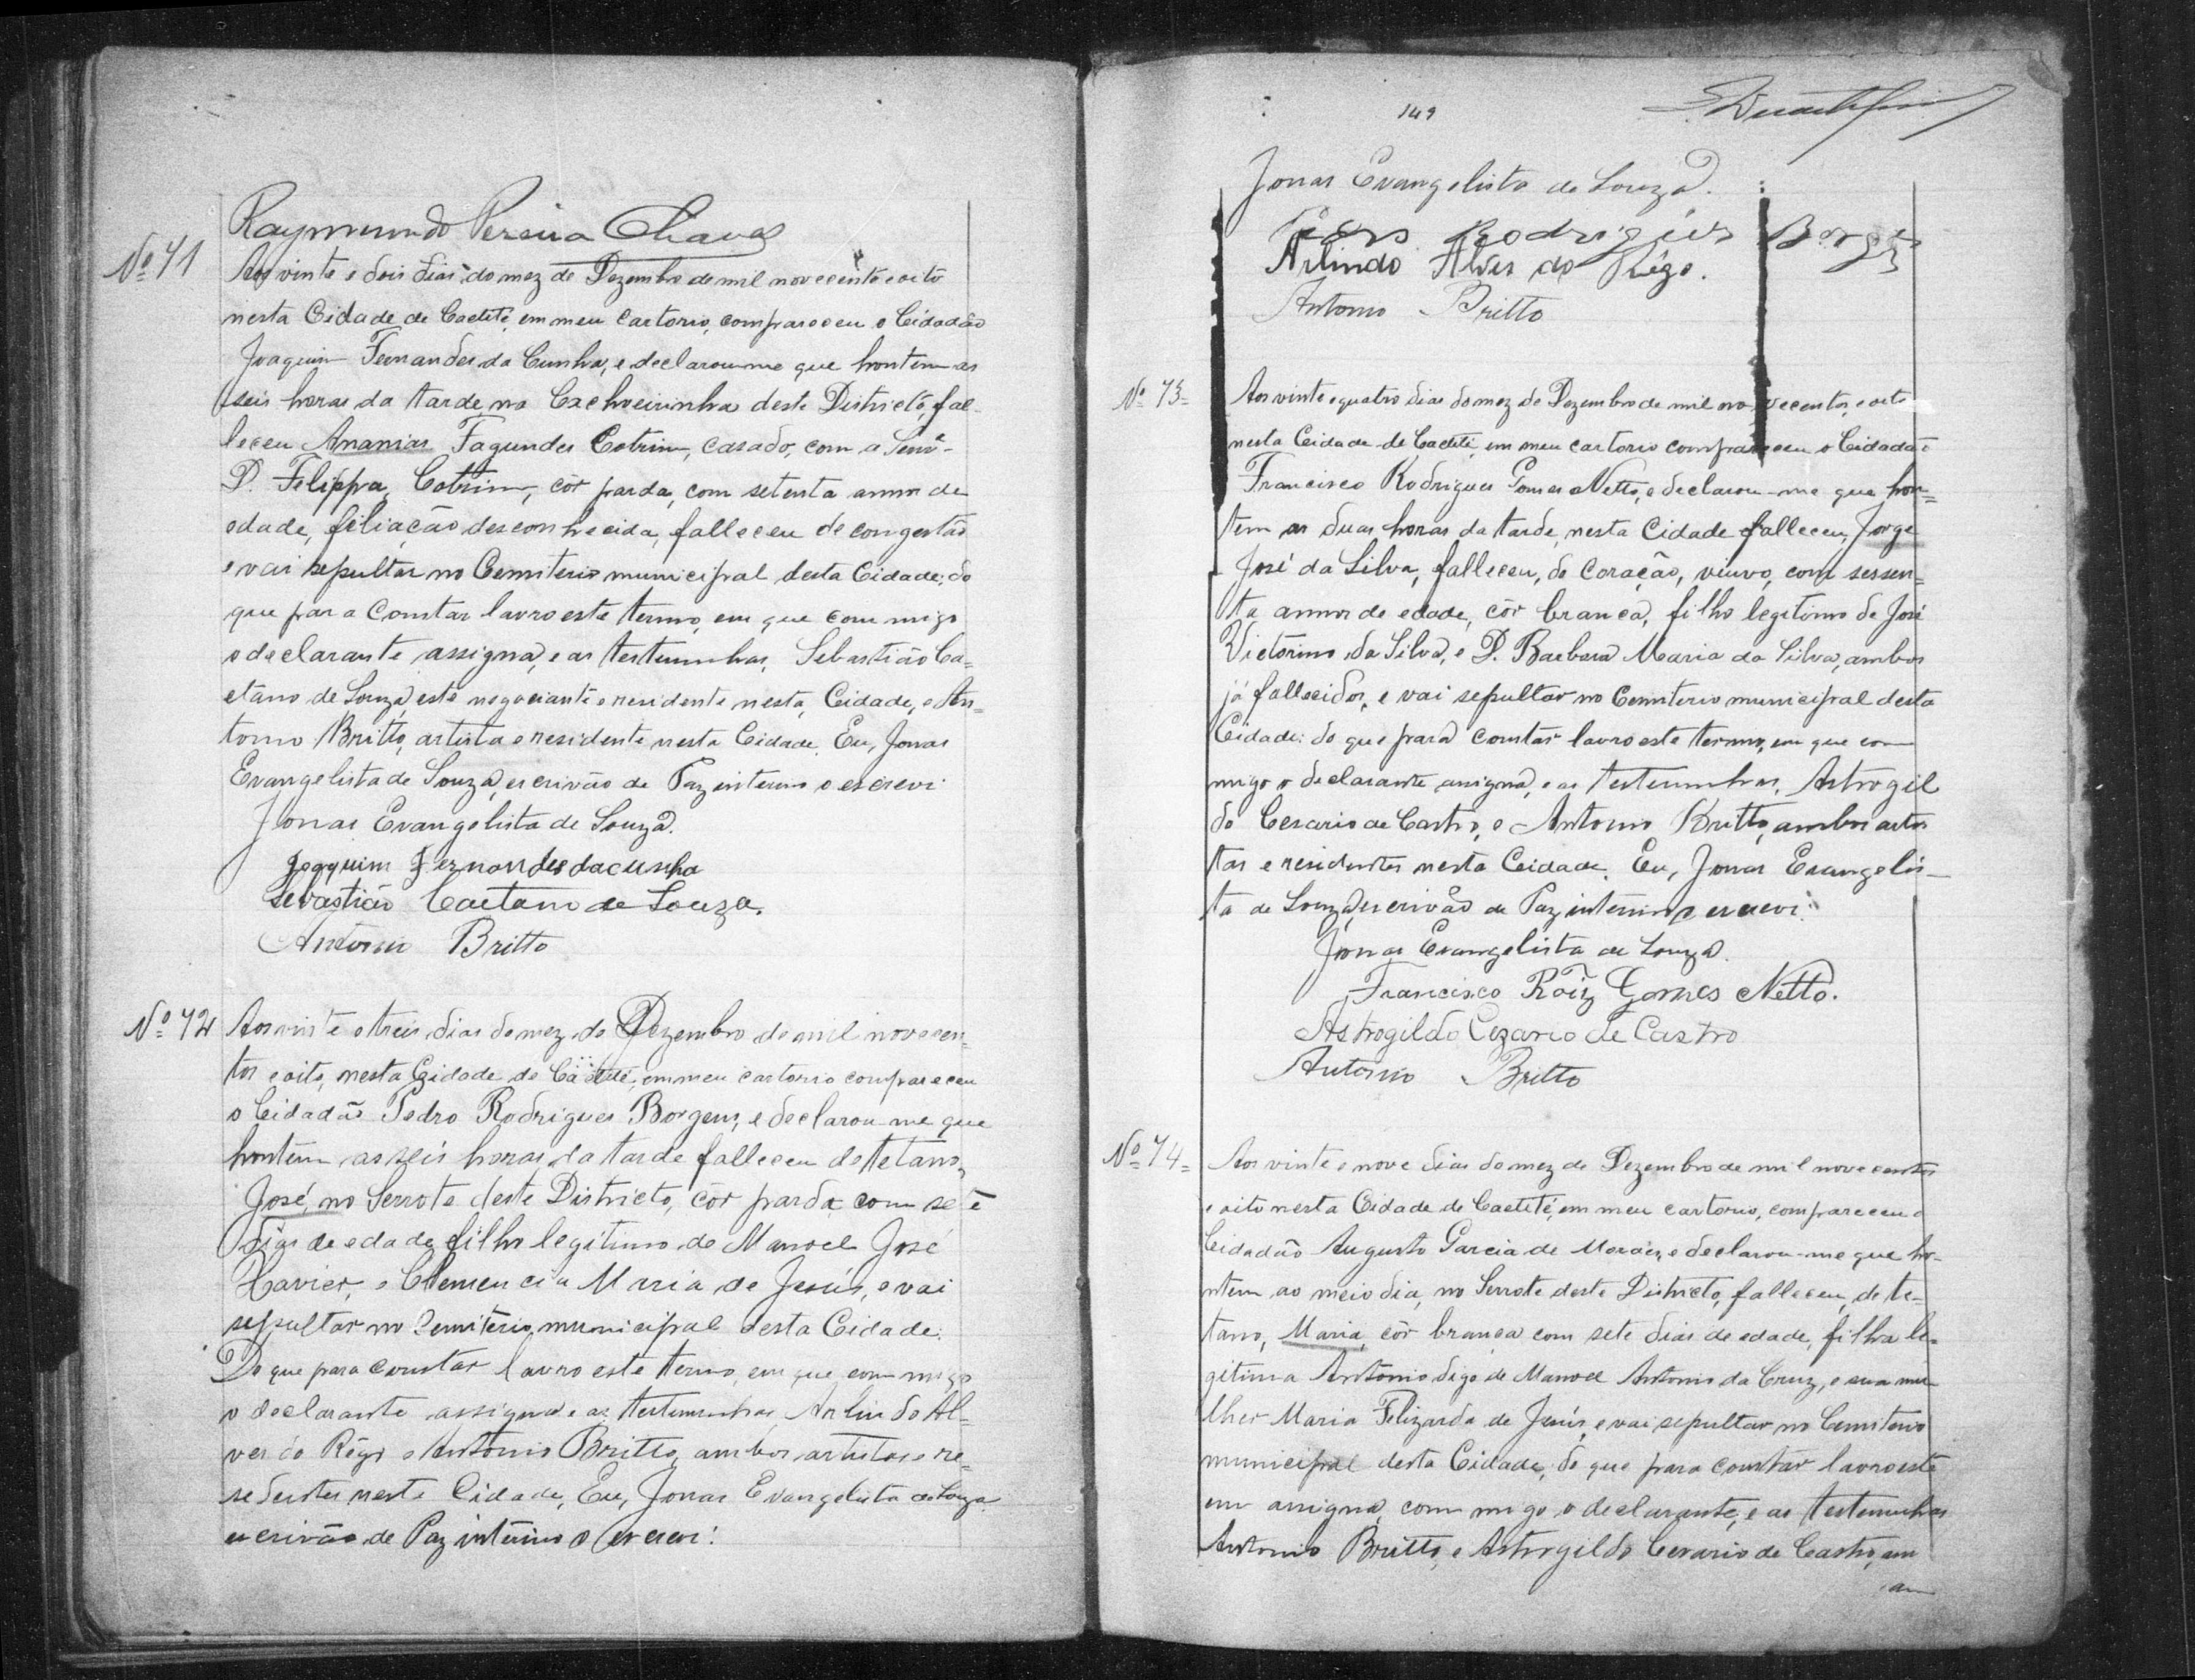 Raymundo Pereira Chaves
Nº 71
Aos vinte e dois dias do mez de Dezembro de mil novecentos e oito
nesta Cidade de Caeteté, em meu cartorio, compareceu o Cidadão
Joaquim Fernandes da Cunha, e declarou-me que hontem as
seis horas da tarde, na Cachoeirinha deste Districto, fal-
leceu Ananias Fagundes Cotrim, casado, com a Senrª
D. Filippa Cotrim, côr parda, com setenta annos de
edade, filiação desconhecida, falleceu de congestão
e vai sepultar no Cemiterio municipal desta Cidade; do
que para constar lavro este termo, em que commigo
o declarante assigna, e as testemunhas, Sebastião Ca=
etano de Souza, este negociante e residente nesta Cidade, e An=
tonio Britto, artista e residente nesta Cidade. Eu, Jonas
Evangelista de Souza, escrivão de Paz interino o escrevi
Jonas Evangelista de Souza.
Joaquim Fernandes da cunha
Sebastião Caetano de Souza.
Antonio Britto
Nº 72
Aos vinte e treis dias do mez de Dezembro de mil novecen=
tos e oito, nesta Cidade de Caeteté, em meu cartorio compareceu
o Cidadão Pedro Rodrigues Borges, e declarou-me que
hontem as seis horas da tarde falleceu de tetano,
José, no Serrote deste Districto, côr parda com sete
dias de edade, filho legitimo de Manoel José
Xavier, e Clemencia Maria de Jesús, e vai
sepultar no Cemiterio municipal desta Cidade.
Do que para constar lavro este termo, em que commigo
o declarante assigna e as testemunhas Arlindo Al=
ves do Rêgo e Antonio Britto, ambos artistas e re=
sedentes neste Cidade, Eu, Jonas Evangelista de Souza
escrivão de Paz interino o escrevi:
149
Jonas Evangelista de Souza.
Pedro Rodrigues Borges
Arlindo Alves do Rêgo.
Antonio Britto
Nº 73=
Aos vinte e quatro dias do mez de Dezembro de mil novecentos, e oito
nesta Cidade de Caeteté, em meu cartorio compareceu o Cidadão
Francisco Rodrigues Gomes Netto, e declarou-me que hon=
tem as duas horas da tarde, nesta Cidade falleceu, Jorge
José da Silva, falleceu, do coração, viuvo, com sessen=
ta annos de edade, côr branca, filho legitimo de José
Victorino da Silva, e D. Barbara Maria da Silva, ambos
já fallecidos, e vai sepultar no Cemiterio municipal desta
Cidade: do que para constar lavro este termo, em que com
migo o declarante assigna, e as testemunhas, Astrogil
do Cesario de Castro, e Antonio Britto, ambos artis
tas e residentes nesta Cidade. Eu, Jonas Evangelis-
ta de Souza, escrivão de Paz interino o escrevi:
Jonas Evangelista de Souza.
Francisco Roiz Gomes Netto.
Astrogildo Cezario de Castro
Antonio Britto
Nº 74=
Aos vinte e nove dias do mez de Dezembro de mil novecentos
e oito nesta Cidade de Caeteté, em meu cartorio, compareceu o
Cidadão Augusto Garcia de Moraes, e declarou-me que ho-
ntem ao meio dia, no Serrote deste Districto, falleceu, de te-
tano, Maria, côr branca com sete dias de edade, filha le=
gitima Antonio digo de Manoel Antonio da Cruz, e sua mu
lher Maria Felizarda de Jesús, e vai sepultar no Cemiterio
municipal desta Cidade, do que para constar lavro este
em assigna, commigo o declarante, e as testemunhas
Antonio Britto, e Astrogildo Cesario de Castro, am
am